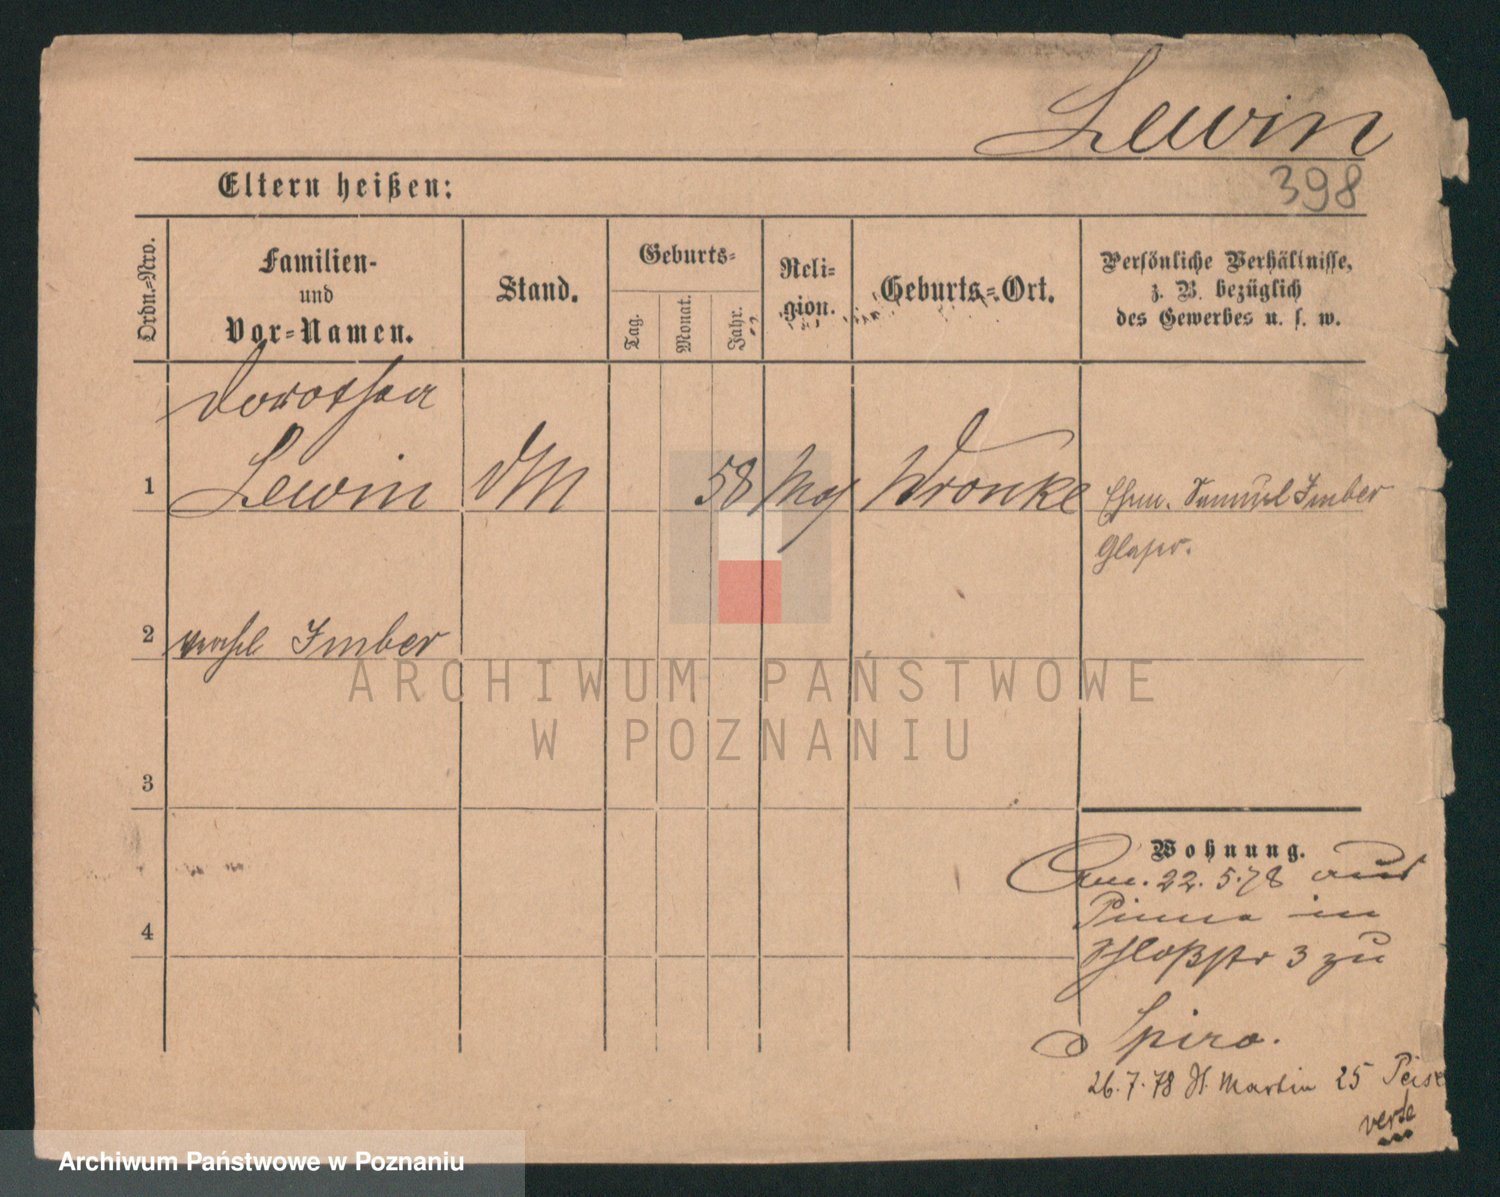 Lewin
398
Eltern heißen:
Ordn.-Nro.
Familien-
und
Vor-Namen.
Stand.
Geburts-
Tag.
Monat.
Jahr.
Reli-
gion.
Geburts-Ort.
Persönliche Verhältnisse,
z. B. bezüglich
des Gewerbes u. s. w.
Dorothea
1 Lewin DM 58 Mos Wronke Ehem. Samuel Imber
Glaser.
2 verehl Imber
ARCHIWUM PAŃSTWOWE
W POZNANIU
3
Wohnung.
22.5.78 aus
Pinne in
4
Schloßstr 3 zu
Spiro.
26.7.78 St. Martin 25 Peiser
verte
Archiwum Państwowe w Poznaniu